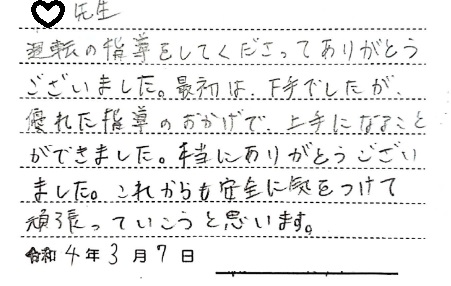 先生
運転の指導をしてくださってありがとう
ございました。最初は、下手でしたが、
優れた指導のおかげで、上手になること
ができました。本当にありがとうござい
ました。これからも安全に気をつけて
頑張っていこうと思います。
令和4年3月7日